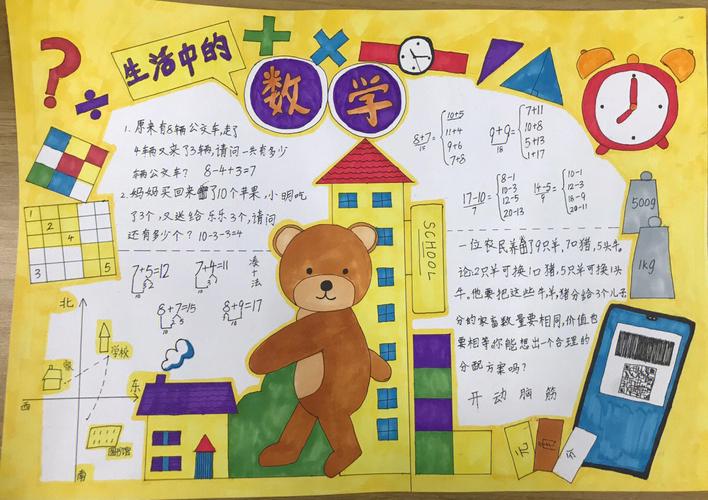 生活中的
数学
1. 原来有8辆公交车,走了
4辆又来了3辆,请问一共有多少
辆公交车? 8-4+3=7
2. 妈妈买回来了10个苹果,小明吃
了3个,又送给乐乐3个,请问
还有多少个? 10-3-3=4
7+5=12 7+4=11
8+7=15 8+9=17
凑十法
北
学校
家
东
西
图书馆
南
1
2
4
3
5
SCHOOL
8+7=
15
10+5
11+4
9+6
7+8
9+9=
18
7+11
10+8
5+13
1+17
17-10=
7
8-1
10-3
12-5
20-13
14-5=
9
10-1
12-3
18-9
20-11
500g
1kg
一位农民养了9只羊,7口猪,5头牛。
论2只羊可换1口猪,5只羊可换1头
牛。他要把这些牛,羊,猪分给3个儿子
分的家畜数量要相同,价值也
要相等,你能想出一个合理的
分配方案吗?
开动脑筋
元
角
分